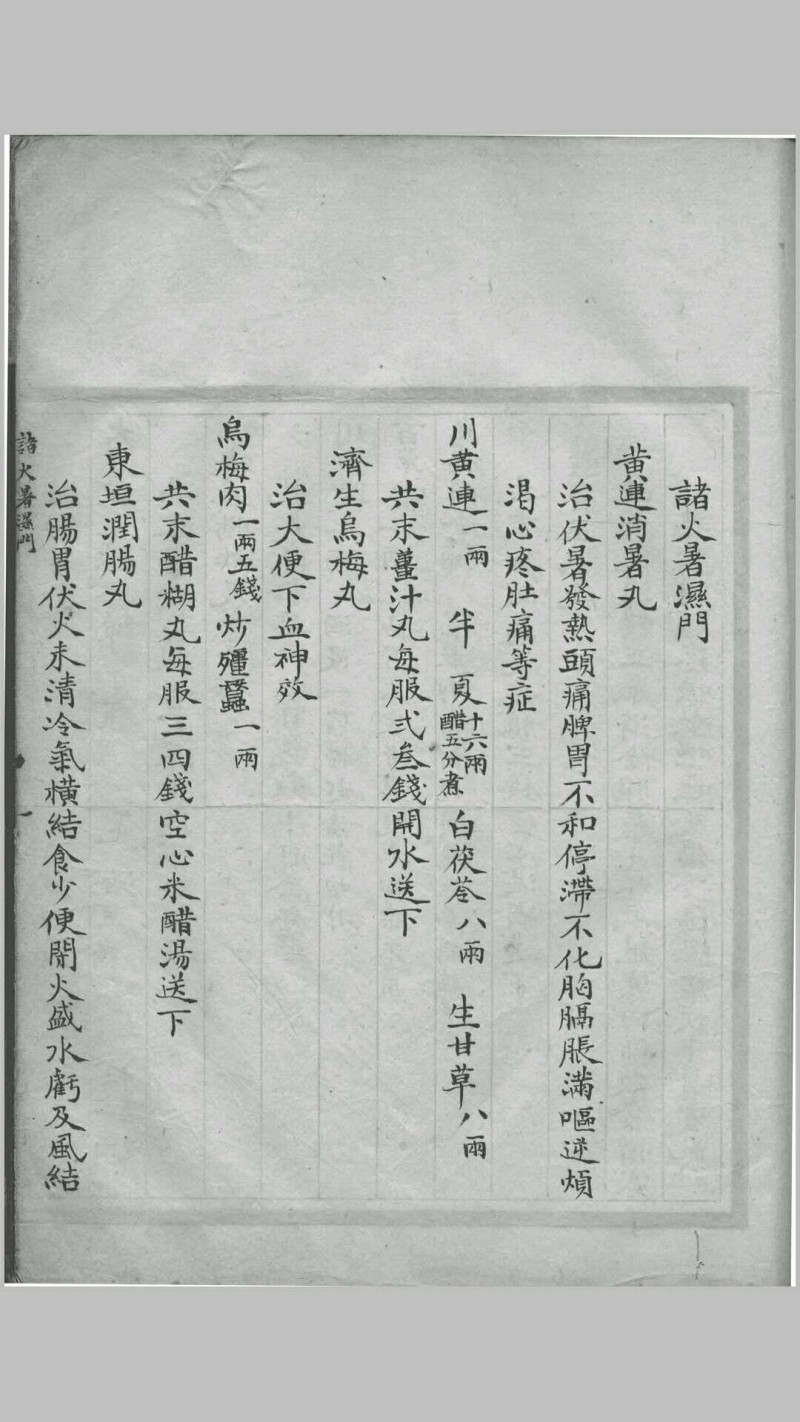 諸火暑濕門
黄連消暑丸
治伏暑發熱頭痛脾胃不和停滯不化胸膈脹滿嘔逆煩
渴心疼肚痛等症
川黄連一兩 半夏十六兩醋五分煮 白茯苓八兩 生甘草八兩
共末薑汁丸每服弍叁錢開水送下
濟生烏梅丸
治大便下血神效
烏梅肉一兩五錢 炒殭蠶一兩
共末醋糊丸每服三四錢空心米醋湯送下
東垣潤腸丸
治腸胃伏火未清冷氣横結食少便閉火盛水虧及風結
諸火暑濕門 一